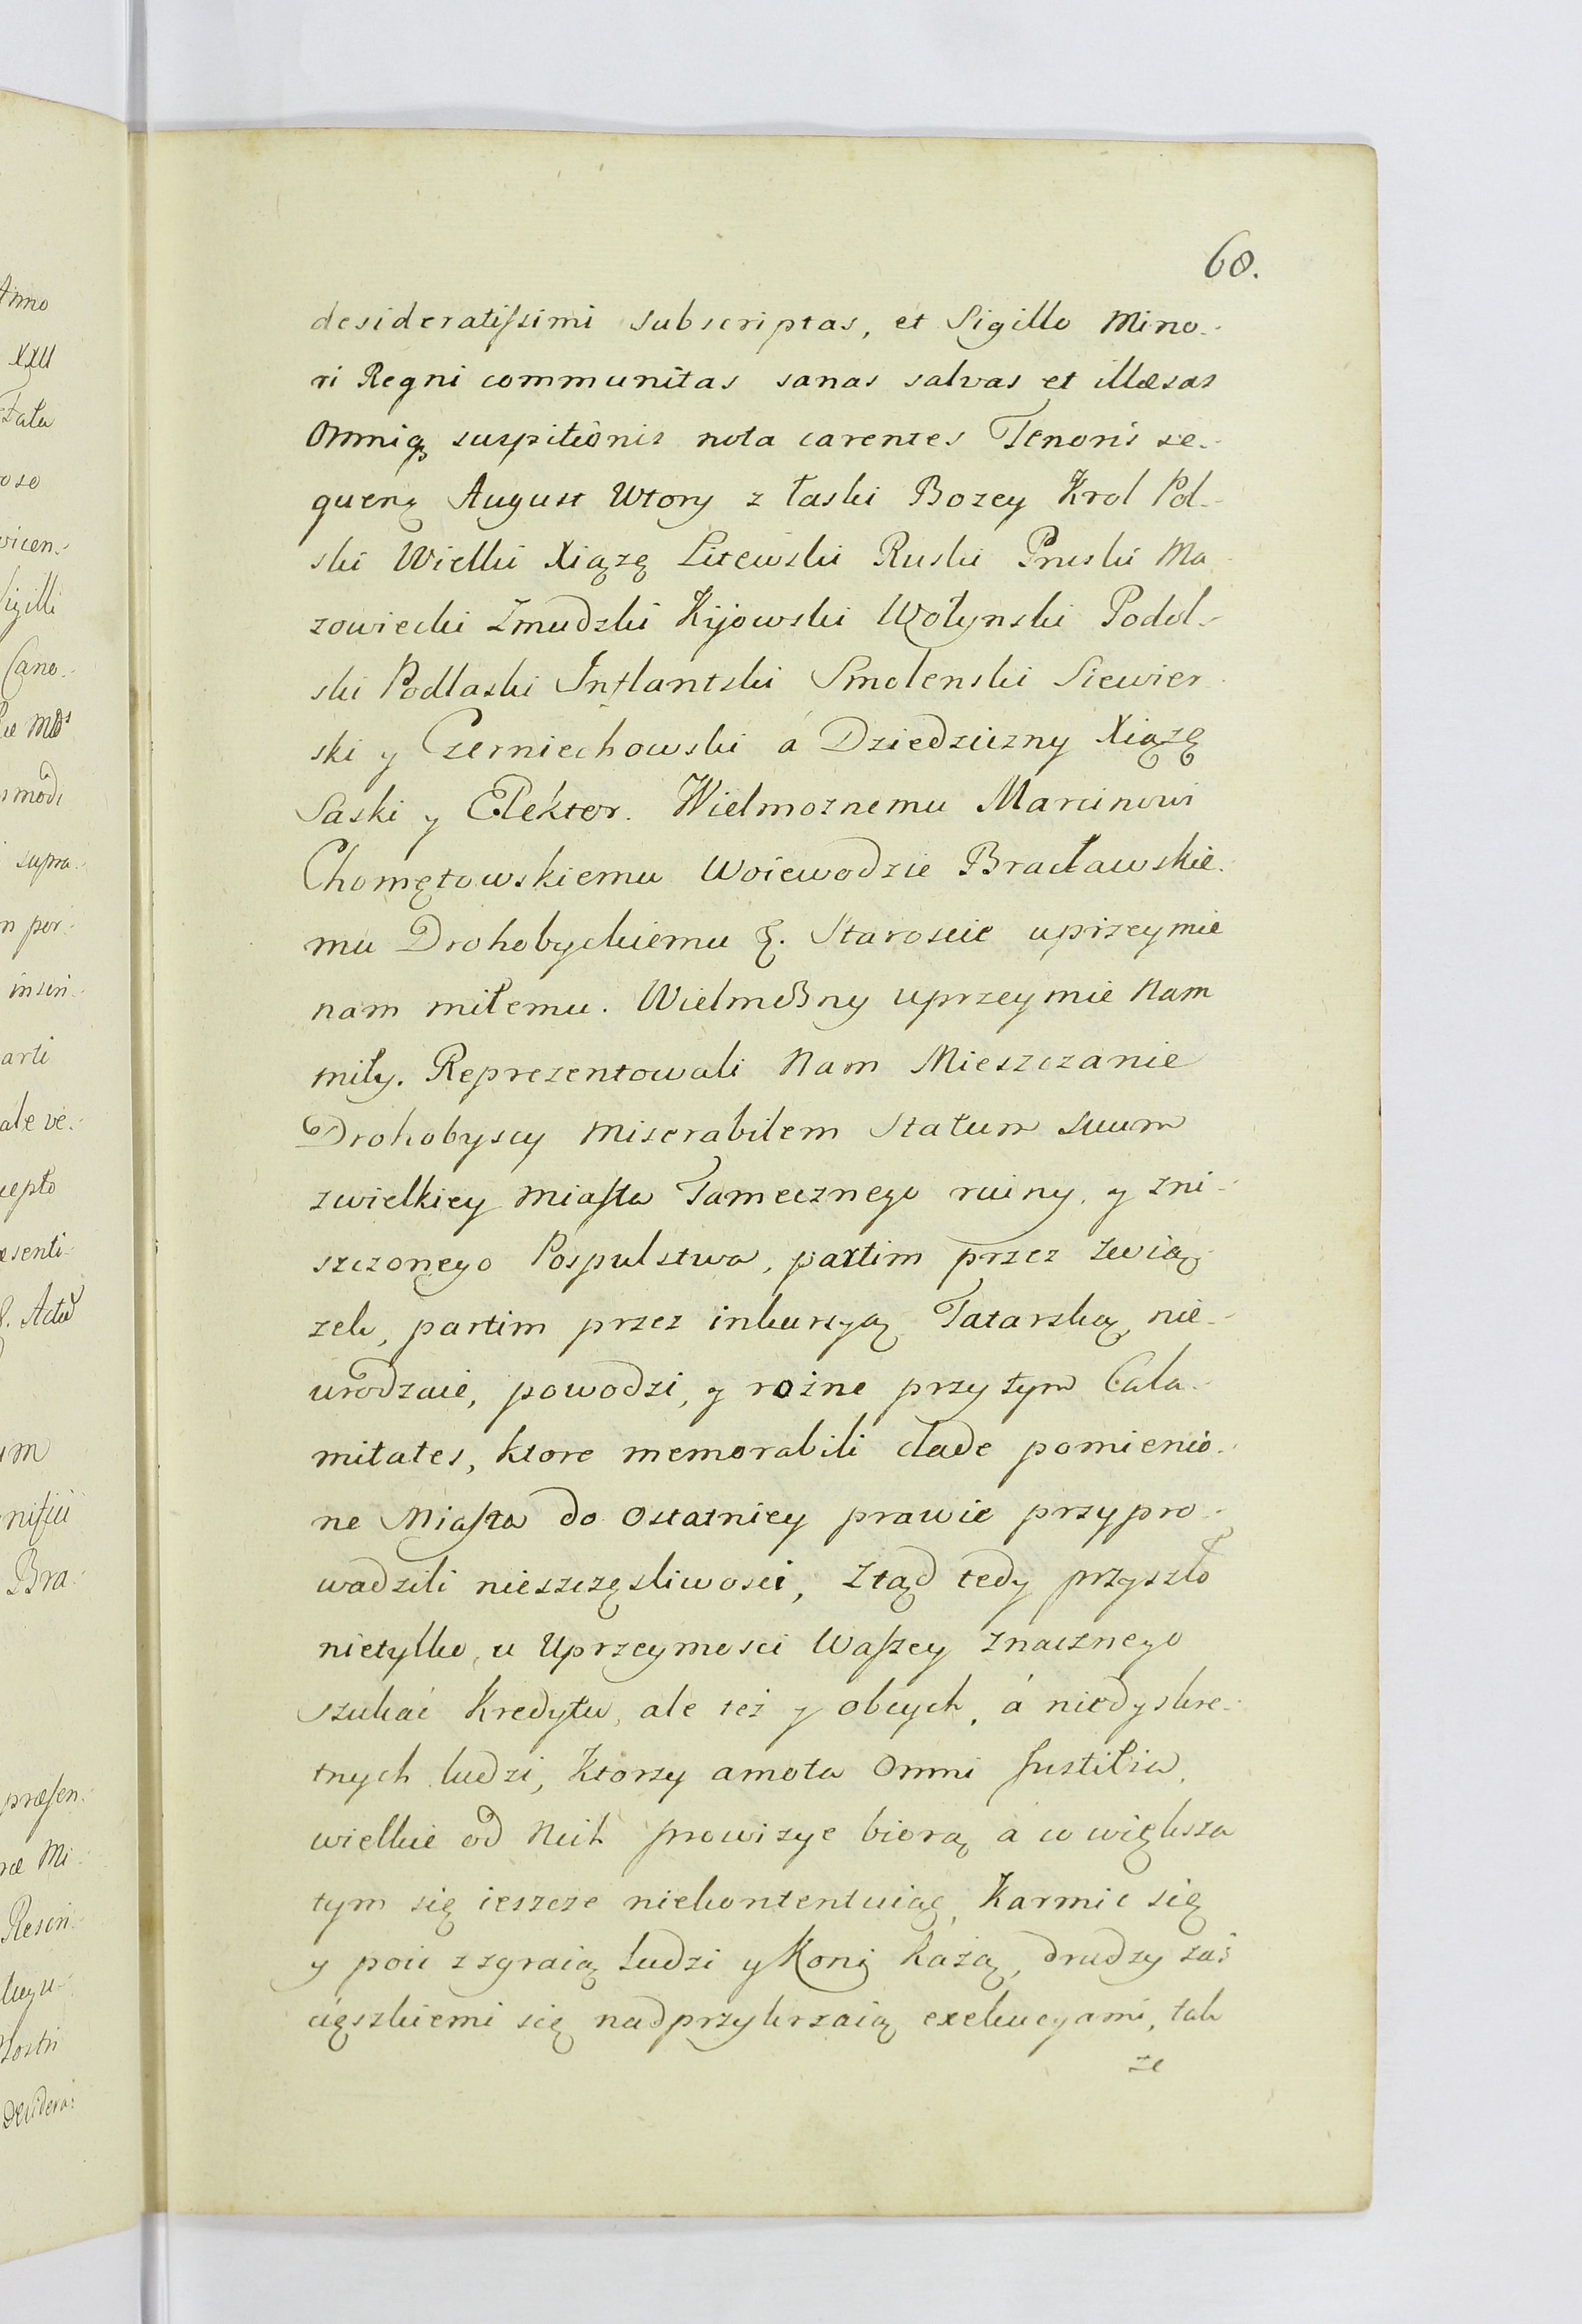 60.
desideratiſsimi subscriptas, et Sigillo Mino-
ri Regni communitas sanas salvas et illæsas
Omniq suspitionis nota carentes Tenoris se-
quenę August Wtory z łaski Bozey Krol Pol-
ski Wielki Xiązę Litewski Ruski Pruski Ma
zowiecki Zmudzki Kijowski Wołynski Podol-
ski Podlaski Inflantski Smolenski Siewier
ski y Czerniechowski á Dziedziczny Xiązę
Saski y Elektor. Wielmoznemu Marcinowi
Chomętowskiemu Woiewodzie Bracławskie-
mu Drohobyckiemu &. Staroscie uprzeymie
nam miłemu. Wielmożny uprzeymie Nam
miły. Reprezentowali Nam Mieszczanie
Drohobyscy Miserabilem Statum suum
zwielkiey Miaſta Tamecznego ruiny, y zni-
szczonego Pospulstwa, partim przez Zwią-
zek, partim przez inkursyą Tatarską, nie-
urodzaie, powodzi, y rożne przytym Cala-
mitates, ktore memorabili clade pomienio-
ne Miaſto do Ostatniey prawie przypro-
wadzili nieszczęsliwosci, Ztąd tedy przyszło
nietylko, u Uprzeymosci Waſzey Znacznego
Szukać Kredytu, ale też y obcych, á niedyskre-
tnych ludzi, Ktorzy amota Omni Justitia,
wielkie od Nich prowizye biorą á co większa
tym się ieszcze niekontentuiąc, Karmic się
y poic z zgraią ludzi y Koni każą, drudzy zaś
cięszkiemi się nadprzykrzaią exekucyami, tak
ze
Anno
XXII
vicen-
Sigilli
Cano-
supra-
n per-
arti
ale ve-
cepto
esenti-
Bra-
præsen-
Mi-
Rescri-